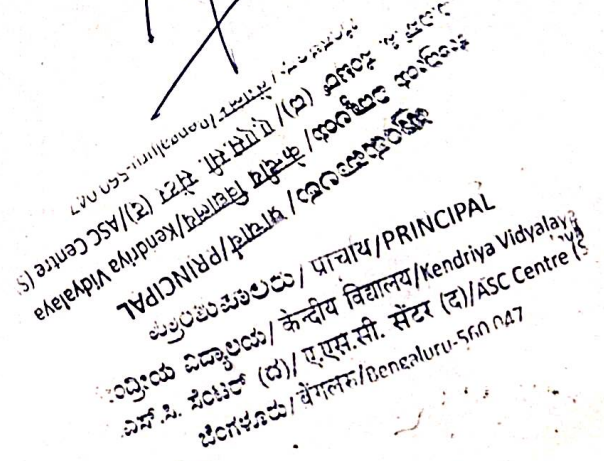 ಪ್ರಾಂಶುಪಾಲರು/ प्राचार्य/PRINCIPAL
ಕೇಂದ್ರೀಯ ವಿದ್ಯಾಲಯ/ केन्द्रीय विद्यालय/Kendriya Vidyalaya
ಎ.ಎಸ್.ಸಿ. ಸೆಂಟರ್ (ದ)/ ए.एस.सी. सेंटर (द)/ASC Centre (S
ಬೆಂಗಳೂರು/ बेंगलूरु/Bengaluru-560 047
ಪ್ರಾಂಶುಪಾಲರು/ प्राचार्य/PRINCIPAL
ಕೇಂದ್ರೀಯ ವಿದ್ಯಾಲಯ/ केन्द्रीय विद्यालय/Kendriya Vidyalaya
ಎ.ಎಸ್.ಸಿ. ಸೆಂಟರ್ (ದ)/ ए.एस.सी. सेंटर (द)/ASC Centre (S
ಬೆಂಗಳೂರು/ बेंगलूरु/Bengaluru-560 047